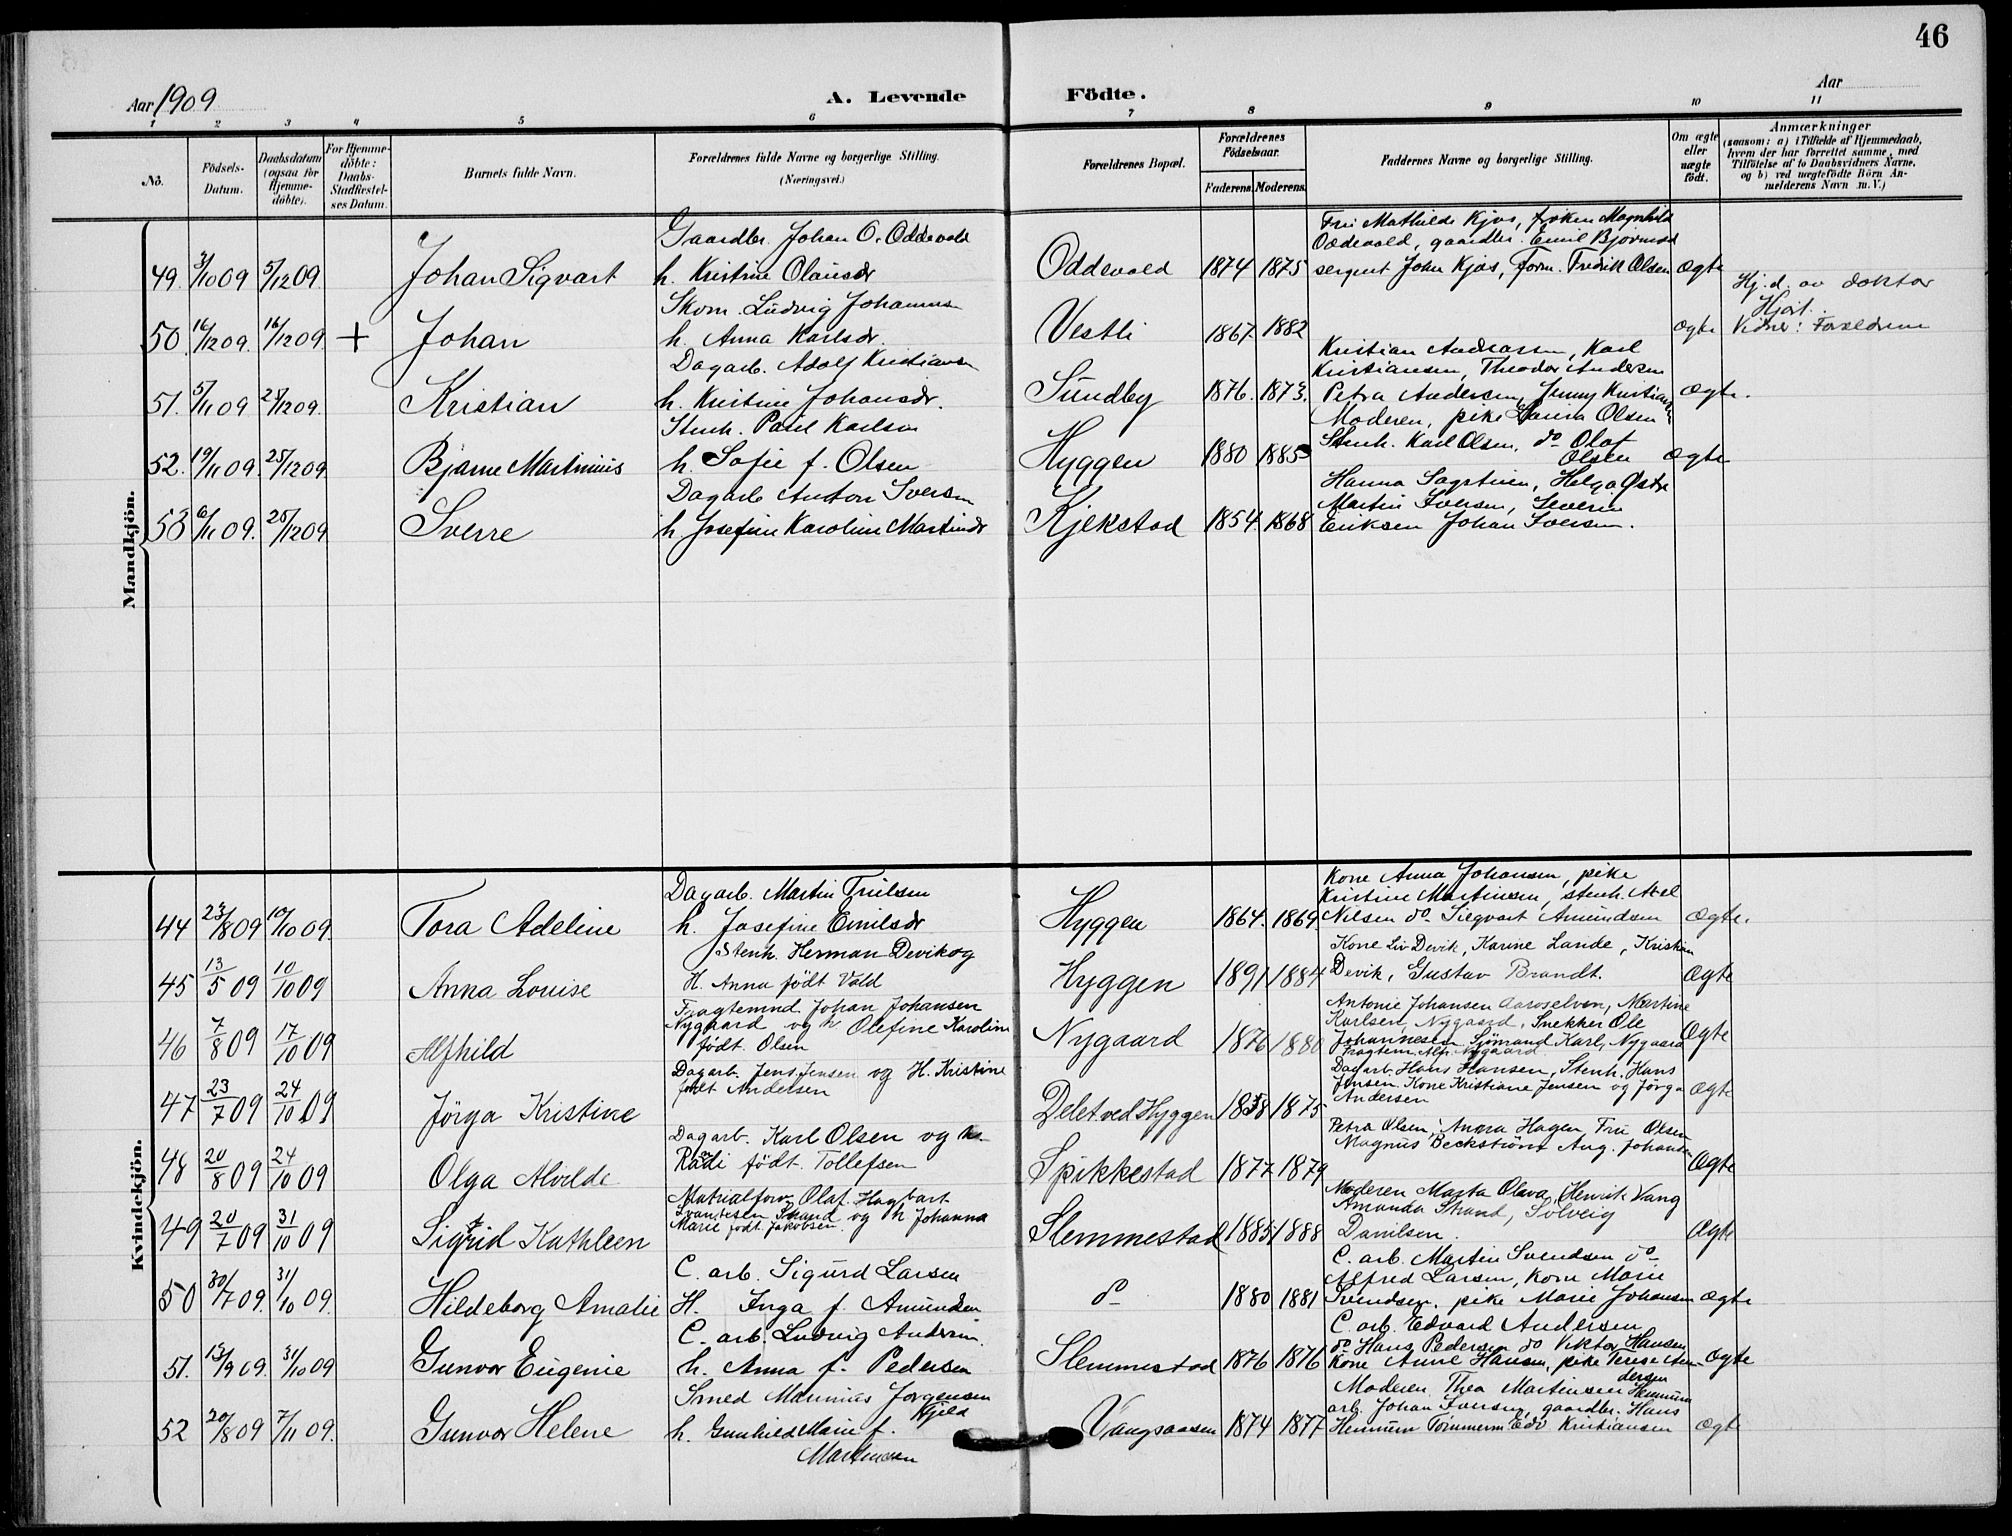 46
Aar 1909
A. Levende Födte.
Aar
1 2 3 4 5 6 7 8 9 10 11
No.
Födsels-Datum.
Daabsdatum (ogsaa for Hjemme-döbte).
For Hjemme-döbte: Daabs-Stadfæstel-ses Datum.
Barnets fulde Navn.
Forældrenes fulde Navne og borgerlige Stilling. (Næringsvei.)
Forældrenes Bopæl.
Forældrenes Födselsaar.
Faderens. Moderens.
Faddernes Navne og borgerlige Stilling.
Om ægte eller uægte födt.
Anmærkninger
(saasom: a) i Tilfælde af Hjemmedaab, hvem der har forrettet samme, med Tilföielse af to Daabsvidners Navne, og b) ved uægtefödte Börn An-melderens Navn m. V.)
Mandkjön.
Gaardbr. Johan O. Oddevald
Fru Mathilde Kjos, frøken Magnhild
Oddevald, gaardbr. Emil Bjørnstad
49. 3/10 09 5/12 09. Johan Sigvart h. Kristine Olausdr Oddevald 1874 1875 sergent John Kjos, Form. Fredrik Olsen ægte
Skom. Ludvig Johannes
Hj.d. av doktor
Hjort.
50. 16/12 09. 16/12 09. + Johan h. Anna Karlsdr. Vestli 1867 1882 ægte Vidner: Forældrene
Dagarb. Adolf Kristiansen
Kristian Andreasen, Karl
Kristiansen, Theodor Andersen
51. 5/11 09 25/12 09. Kristian h. Kristine Johansdr. Sundby 1876. 1873. Petra Andersen, Jenny Kristians ægte.
Stenh. Paul Karlsen
Moderen, pike Laura Olsen
Stenh. Karl Olsen, do Olaf
52. 19/11 09. 25/12 09. Bjarne Martinius h. Sofie f. Olsen Hyggen 1880 1885 Olsen ægte
Dagarb Anton Iversen
Hanna Sagstuen, Helga Østre
Martin Iversen, Severin
53 6/11 09. 25/12 09 Sverre h. Josefine Karoline Martinsdr Kjekstad 1854 1868 Eriksen Johan Iversen.
Kvindekjön.
Dagarb. Martin Truelsen
Kone Anna Johansen, pike
Kristine Martinsen, stenh. Axel
44 23/8 09 10/10 09. Tora Adeline h. Josefine Emilsdr Hyggen 1864. 1869 Nilsen do Siegvart Amundsen ægte.
Stenh. Herman Devik og
Kone Liv Devik, Karine Lande, Kristian
45 13/5 09 10/10 09 Anna Louise H. Anna født Vold Hyggen 1891 1884 Devik, Gustav Brandt. ægte
Fragtemnd Johan Johansen
Antonie Johansen Aaroselven, Martine
Nygaard og h. Olefine Karoline
Karlsen, Nygaard, Snekker Ole
46 7/8 09 17/10 09 Alfhild født Olsen Nygaard 1876 1880 Johannesen Sjømand Karl, Nygaard ægte
Fragtem. Alf. Nygaard
Dagarb. Jens Jensen og H. Kristine
Dagarb. Hans Hansen, Stenh. Hans
født Andersen
Jensen. Kone Kristiane Jensen og Jörga
47 23/7 09 24/10 09 Jörga Kristine Delet ved Hyggen 1838 1875 Andersen ægte
Dagarb. Karl Olsen og h.
Petra Olsen, Anna Hagen, Fru Olsen
48 20/8 09 24/10 09 Olga Alvilde Radi født. Tollefsen Spikkestad 1877 1879 Magnus Beckström Aug. Johansen ægte
Matrialforv Olaf Hagbart
Moderen Marta Olava, Henrik Vang
Svandesen Strand og h Johanna
Amanda Strand, Solveig
49 20/7 09 31/10 09 Sigrid Kathleen Marie født Jakobsen Slemmestad 1885 1888 Danilsen. ægte
C. arb. Sigurd Larsen
C. arb. Martin Svendsen do
Alfred Larsen, Kone Marie
50 30/7 09. 31/10 09. Hildeborg Amalie H. Inga f. Amundsen do 1880 1881 Svendsen, pike Marie Johansen ægte
C. arb. Ludvig Andersen.
C. arb. Edvard Andersen
do Hans Pedersen do Viktor Hansen
51. 13/9 09 31/10 09 Gunvor Eugenie h. Anna f. Pedersen Slemmestad 1876 1876 Kone Anne Hansen, pike Terese An- ægte
dersen
Smed Marinius Jorgensen
Moderen, Thea Martinsen Hennum
Kjeld
arb. Johan Iversen, gaardbr. Hans
52 20/8 09 7/11 09. Gunvor Helene h. Gunhild Marie f. Vangsaasen 1874 1877 Hennum Tömmerm Edv Kristiansen ægte
Martinsen